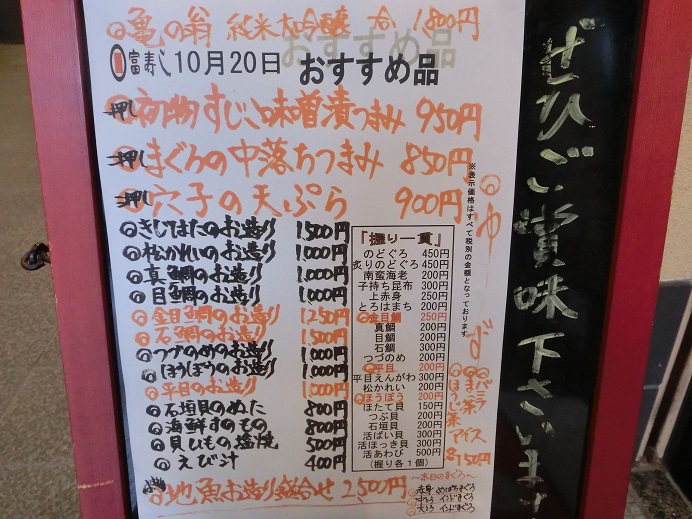 亀の翁 純米大吟醸 合 1,800円
富寿し 10月20日 おすすめ品
押し 初物すじこ味噌漬つまみ 950円
押し まぐろの中落ちつまみ 850円
押し 穴子の天ぷら 900円
※表示価格はすべて税別の金額となっております。
きじはたのお造り 1,500円
松かれいのお造り 1,000円
真鯛のお造り 1,000円
目鯛のお造り 1,000円
金目鯛のお造り 1,250円
石鯛のお造り 1,500円
つづのめのお造り 1,000円
ほうぼうのお造り 1,000円
平目のお造り 1,000円
石垣貝のぬた 800円
海鮮すのもの 800円
貝ひもの塩焼 500円
えび汁 400円
地魚お造り盛合せ 2,500円
「握り一貫」
のどぐろ 450円
炙りのどぐろ 450円
南蛮海老 200円
子持ち昆布 300円
上赤身 250円
とろはまち 200円
金目鯛 250円
真鯛 200円
目鯛 200円
石鯛 300円
つづのめ 200円
平目 200円
平目えんがわ 300円
松かれい 200円
ほうぼう 200円
ほたて貝 150円
つぶ貝 200円
石垣貝 200円
活ばい貝 300円
活ほっき貝 300円
活あわび 500円
(握り各1個)
ゆず
バニラ
まっ茶
ほうじ茶
アイス
各150円
~本日のまぐろ~
赤身 めばちまぐろ
中とろ インドまぐろ
大とろ インドまぐろ
ぜひご賞味下さいませ